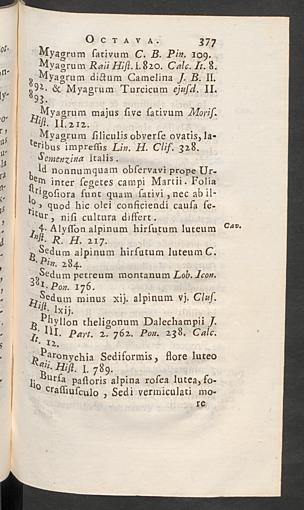 OCTAVA. 377
Myagrum sativum C. B. Pin. 109.
Myagrum Raii Hist. I. 820. Calc. It. 8.
Myagrum dictum Camelina J. B. II.
892. & Myagrum Turcicum ejusd. II.
893.
Myagrum majus sive sativum Moris.
Hist. II. 212.
Myagrum siliculis obverse ovatis, la-
teribus impressis Lin. H. Clif. 328.
Semenzina Italis.
Id nonnumquam observavi prope Ur-
bem inter segetes campi Martii. Folia
strigosiora sunt quam sativi, nec ab il-
lo, quod hic olei conficiendi causa se-
ritur, nisi cultura differt.
4. Alysson alpinum hirsutum luteum Cav.
Inst. R. H. 217.
Sedum alpinum hirsutum luteum C.
B. Pin. 284.
Sedum petreum montanum Lob. Icon.
381. Pon. 176.
Sedum minus xij. alpinum vj. Clus.
Hist. lxij.
Phyllon theligonum Dalechampii J.
B. III. Part. 2. 762. Pon. 238. Calc.
It. 12.
Paronychia Sediformis, flore luteo
Raii. Hist. I. 789.
Bursa pastoris alpina rosea lutea, fo-
lio crassiusculo, Sedi vermiculati mo-
re